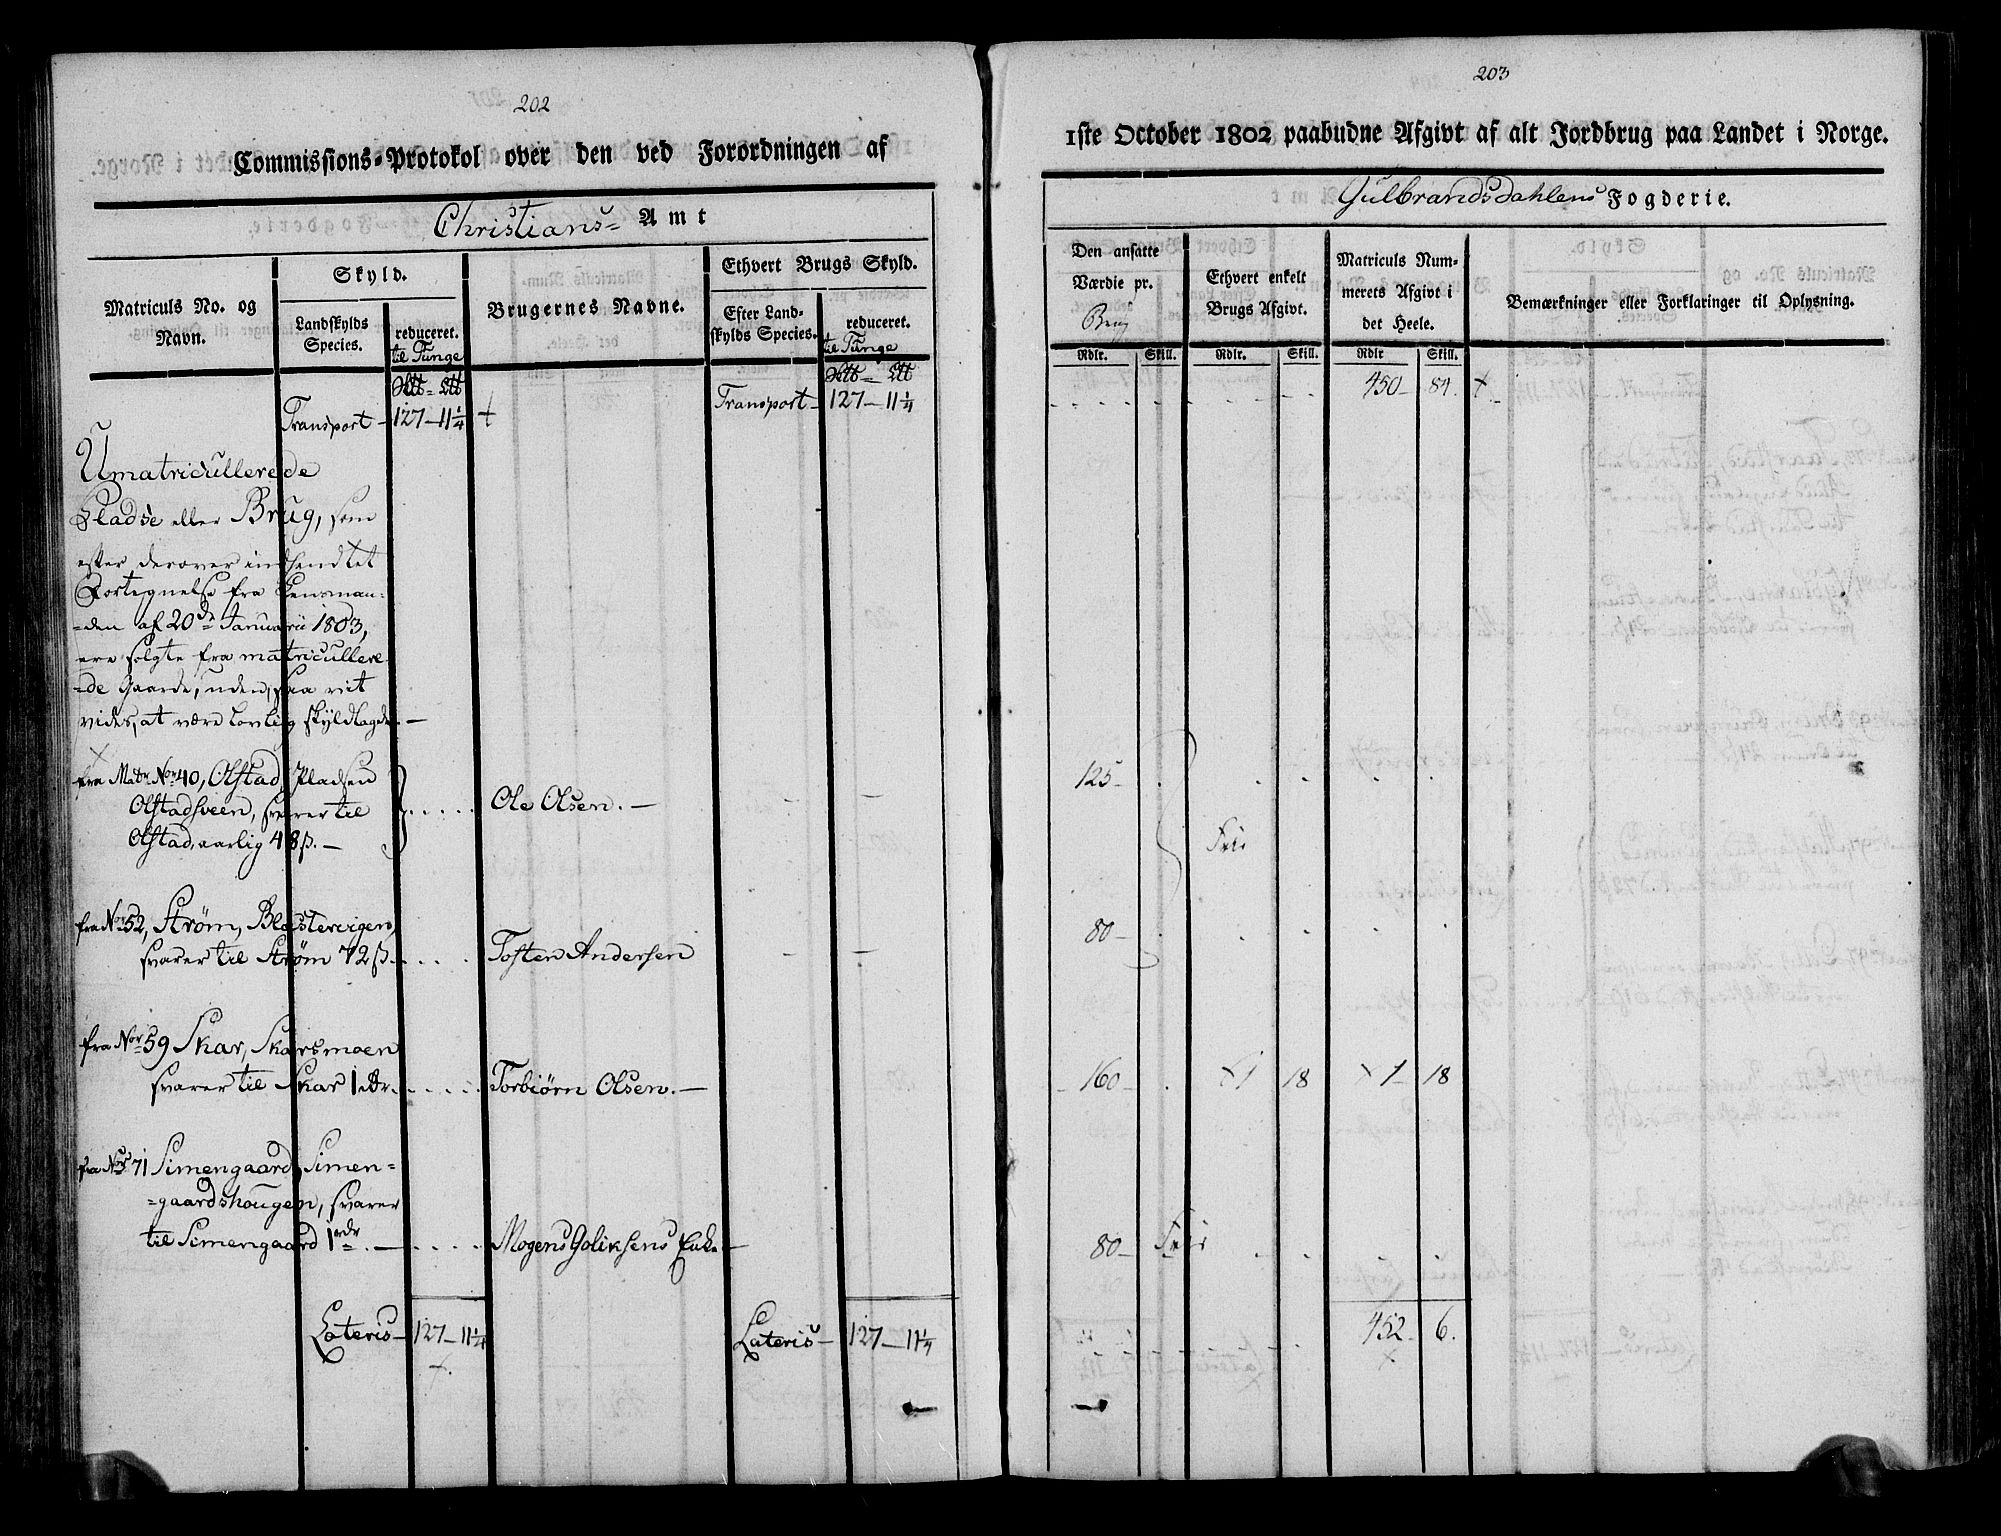 202
Commissions-Protokol over den ved Forordningen af
Christians- Amt
Matriculs No. og Navn.
Skyld.
Landskylds Species.
reduceret.
til Tunge
Brugernes Navne.
Ethvert Brugs Skyld.
Efter Landskylds Species.
reduceret.
til Tunge
Transport - 127 - 11 1/4
Transport - 127 - 11 1/4
Umatricullerede
Pladse eller Brug, som
efter derover indsendtet
Fortegnelse fra Lensman-
-den af 20de Januarii 1803,
ere solgte fra matricullere-
-de Gaarde, uden, saa vit
vides, at være lovlig skyldlagde. -
fra Matr. Nor. 40, Olstad, Pladsen
Olstadsveen, svarer til
Olstad, aarlig 48 ß. - Ole Olsen. -
fra Nor. 52, Strøm, Blestervigen,
svarer til Strøm 72 ß. Tosten Andersen
fra Nor. 59 Skar, Skarsmoen
svarer til Skar 1 rdr. Torbiørn Olsen. -
fra Nor. 71 Simengaard, Simen-
-gaardshougen, svarer
til Simengaard 1 rdr. - Mogens Goliksens Enke -
Lateris - 127 - 11 1/4
Lateris - 127 - 11 1/4
203
1ste October 1802 paabudne Afgivt af alt Jordbrug paa Landet i Norge.
Gulbrandsdahlens Fogderie.
Den ansatte Værdie pr.
Brug
Ethvert enkelt Brugs Afgivt.
Matriculs Nummerets Afgivt i det Heele.
Bemærkninger eller Forklaringer til Oplysning.
Rdlr. Skill. Rdlr. Skill. Rdlr Skill.
450 - 84.
125 -
Frie
80 -
160 - 1 18 1 - 18
80 - Frie
452 - 6.